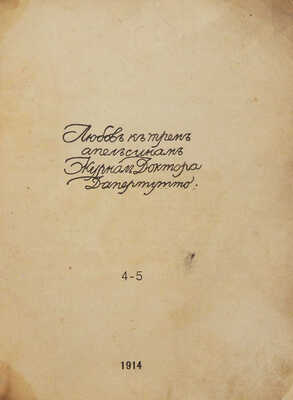 Любовь къ тремъ
апельсинамъ
Журналъ Доктора
Дапертутто.
4-5
1914